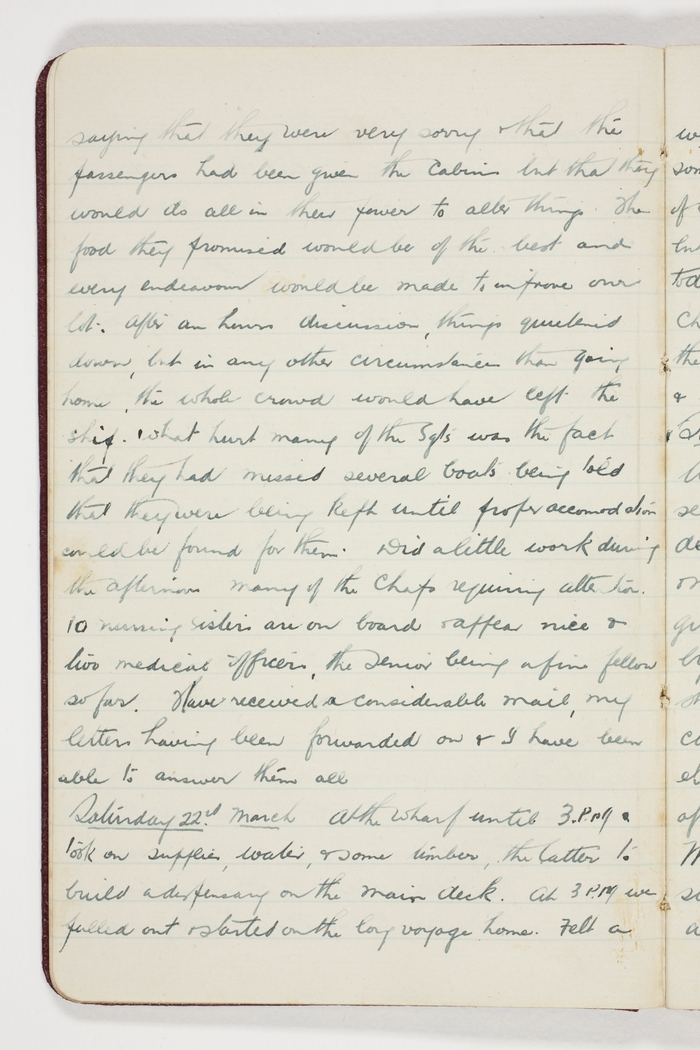 saying that they were very sorry & that the
passengers had been given the cabins but that they
would do all in their power to alter things. The
food they promised would be of the best and
every endeavour would be made to improve our
lot. After an hours discussion, things quietened
down, but in any other circumstances than going
home, the whole crowd would have left the
ship. What hurt many of the Sgts was the fact
that they had missed several boats being told
that they were being kept until proper accomodation
could be found for them. Did a little work during
the afternoon many of the chaps requiring attention.
10 nursing sisters are on board & appear nice &
two medical officers, the senior being a fine fellow
so far. Have received a considerable mail, my
letters having been forwarded on & I have been
able to answer them all
Saturday 22nd March At the wharf until 3.PM &
took on supplies, water, & some timber, the latter to
build a dispensary on the main deck. At 3 PM we
pulled out & started on the long voyage home. Felt a
we
som
of
tod
Ch
the
&
se
de
on
gr
by
st
co
el
of
a